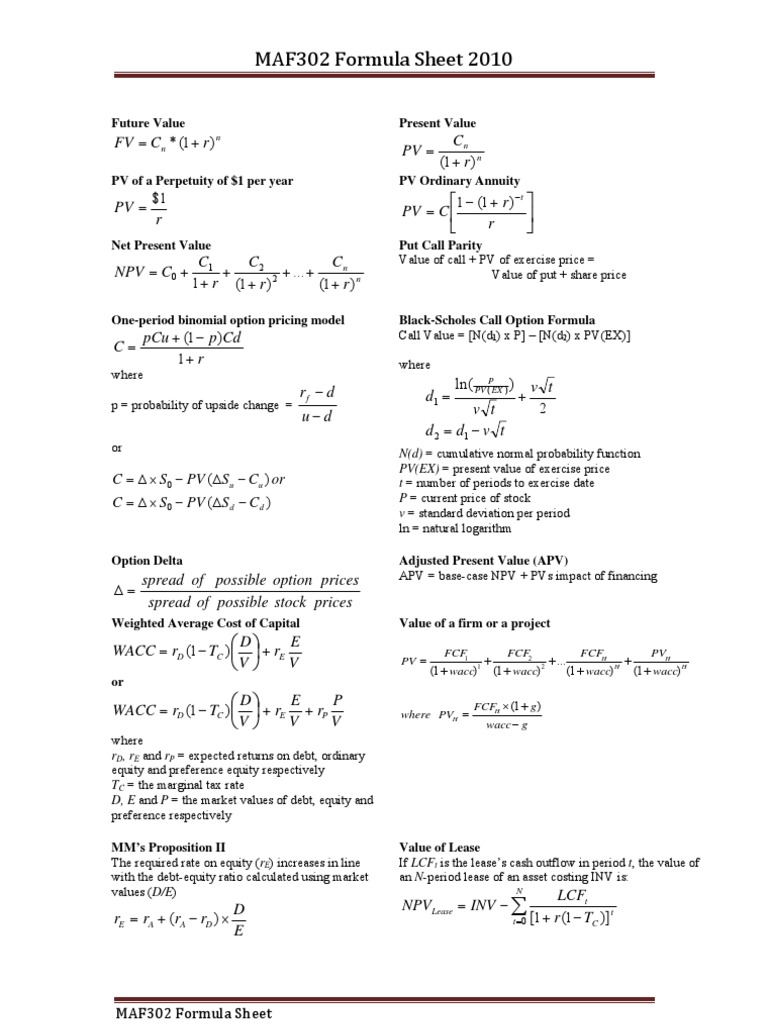 MAF302 Formula Sheet 2010
Future Value
FV = Cₙ * (1 + r)ⁿ
PV of a Perpetuity of $1 per year
PV = $1 / r
Net Present Value
NPV = C₀ + C₁ / (1 + r) + C₂ / (1 + r)² + ... + Cₙ / (1 + r)ⁿ
One-period binomial option pricing model
C = (pCu + (1 − p)Cd) / (1 + r)
where
p = probability of upside change = (r_f − d) / (u − d)
or
C = Δ × S₀ − PV(ΔS_u − C_u) or
C = Δ × S₀ − PV(ΔS_d − C_d)
Option Delta
Δ = spread of possible option prices / spread of possible stock prices
Weighted Average Cost of Capital
WACC = r_D(1 − T_C)(D / V) + r_E E / V
or
WACC = r_D(1 − T_C)(D / V) + r_E E / V + r_P P / V
where
r_D, r_E and r_P = expected returns on debt, ordinary
equity and preference equity respectively
T_C = the marginal tax rate
D, E and P = the market values of debt, equity and
preference respectively
MM's Proposition II
The required rate on equity (r_E) increases in line
with the debt-equity ratio calculated using market
values (D/E)
r_E = r_A + (r_A − r_D) × D / E
Present Value
PV = Cₙ / (1 + r)ⁿ
PV Ordinary Annuity
PV = C[(1 − (1 + r)⁻ᵗ) / r]
Put Call Parity
Value of call + PV of exercise price =
Value of put + share price
Black-Scholes Call Option Formula
Call Value = [N(d₁) x P] – [N(d₂) x PV(EX)]
where
d₁ = ln(P / PV(EX)) / v√t + v√t / 2
d₂ = d₁ − v√t
N(d) = cumulative normal probability function
PV(EX) = present value of exercise price
t = number of periods to exercise date
P = current price of stock
v = standard deviation per period
ln = natural logarithm
Adjusted Present Value (APV)
APV = base-case NPV + PVs impact of financing
Value of a firm or a project
PV = FCF₁ / (1 + wacc)¹ + FCF₂ / (1 + wacc)² + ... FCF_H / (1 + wacc)^H + PV_H / (1 + wacc)^H
where PV_H = FCF_H × (1 + g) / (wacc − g)
Value of Lease
If LCFₜ is the lease's cash outflow in period t, the value of
an N-period lease of an asset costing INV is:
NPV_Lease = INV − ∑_{t=0}^{N} LCFₜ / [1 + r(1 − T_C)]ᵗ
MAF302 Formula Sheet